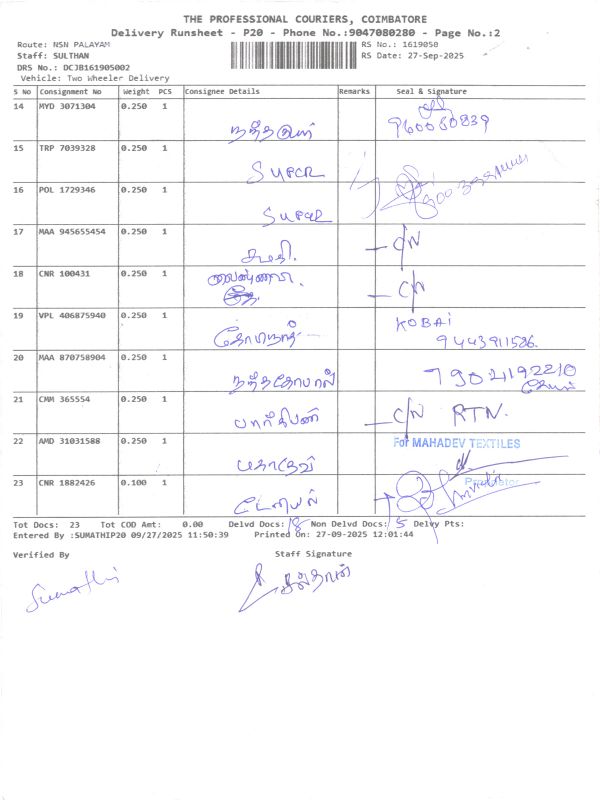 THE PROFESSIONAL COURIERS, COIMBATORE
Delivery Runsheet - P20 - Phone No.:9047080280 - Page No.:2
Route: NSN PALAYAM
RS No.: 1619050
Staff: SULTHAN
RS Date: 27-Sep-2025
DRS No.: DCJB161905002
Vehicle: Two Wheeler Delivery
S No Consignment No Weight PCS Consignee Details Remarks Seal & Signature
14 MYD 3071304 0.250 1
15 TRP 7039328 0.250 1 SUPER
16 POL 1729346 0.250 1 SUPER
17 MAA 945655454 0.250 1 சுமதி. C/N
18 CNR 100431 0.250 1 C/N
19 VPL 406875940 0.250 1 கோபிநாத் KOBAI
9443911586.
20 MAA 870758904 0.250 1 நந்தகோபால்
21 CMM 365554 0.250 1 பார்த்திபன் C/N RTN.
22 AMD 31031588 0.250 1 மகாதேவ் For MAHADEV TEXTILES
Proprietor
23 CNR 1882426 0.100 1 டேனியல்
Tot Docs: 23 Tot COD Amt: 0.00 Delvd Docs: 18 Non Delvd Docs: 5 Delvy Pts:
Entered By :SUMATHIP20 09/27/2025 11:50:39 Printed On: 27-09-2025 12:01:44
Verified By Staff Signature
Sumathi சுல்தான்